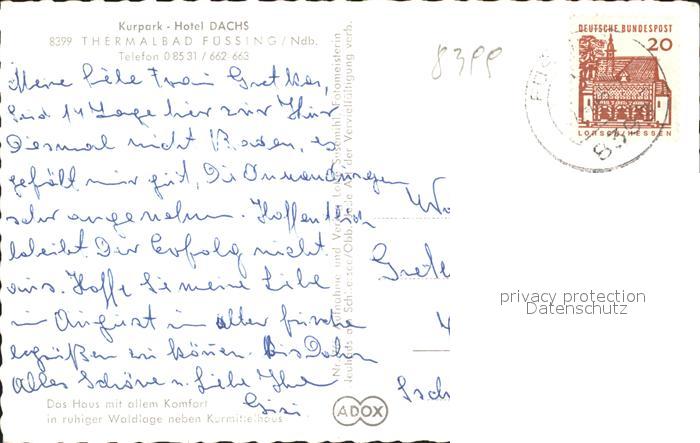 Kurpark - Hotel DACHS
8399 THERMALBAD FÜSSING/Ndb.
Telefon 0 85 31 / 662-663
8399
Meine liebe Frau Gretker,
Seid 14 Tage hier zur Kur
Diesmal nicht Baden, es
gefällt mir gut, Die Anwendungen
sehr angenehm. Hoffentlich
bleibt Der Erfolg nicht
aus. Hoffe Sie meine Liebe
im August in alter frische
begrüßen zu können. Bis Dahin
Alles Schöne u. Liebe Ihre
Gisi
Das Haus mit allem Komfort
in ruhiger Waldlage neben Kurmittelhaus
ADOX
DEUTSCHE BUNDESPOST
20
LORSCH/HESSEN
Grete
privacy protection
Datenschutz